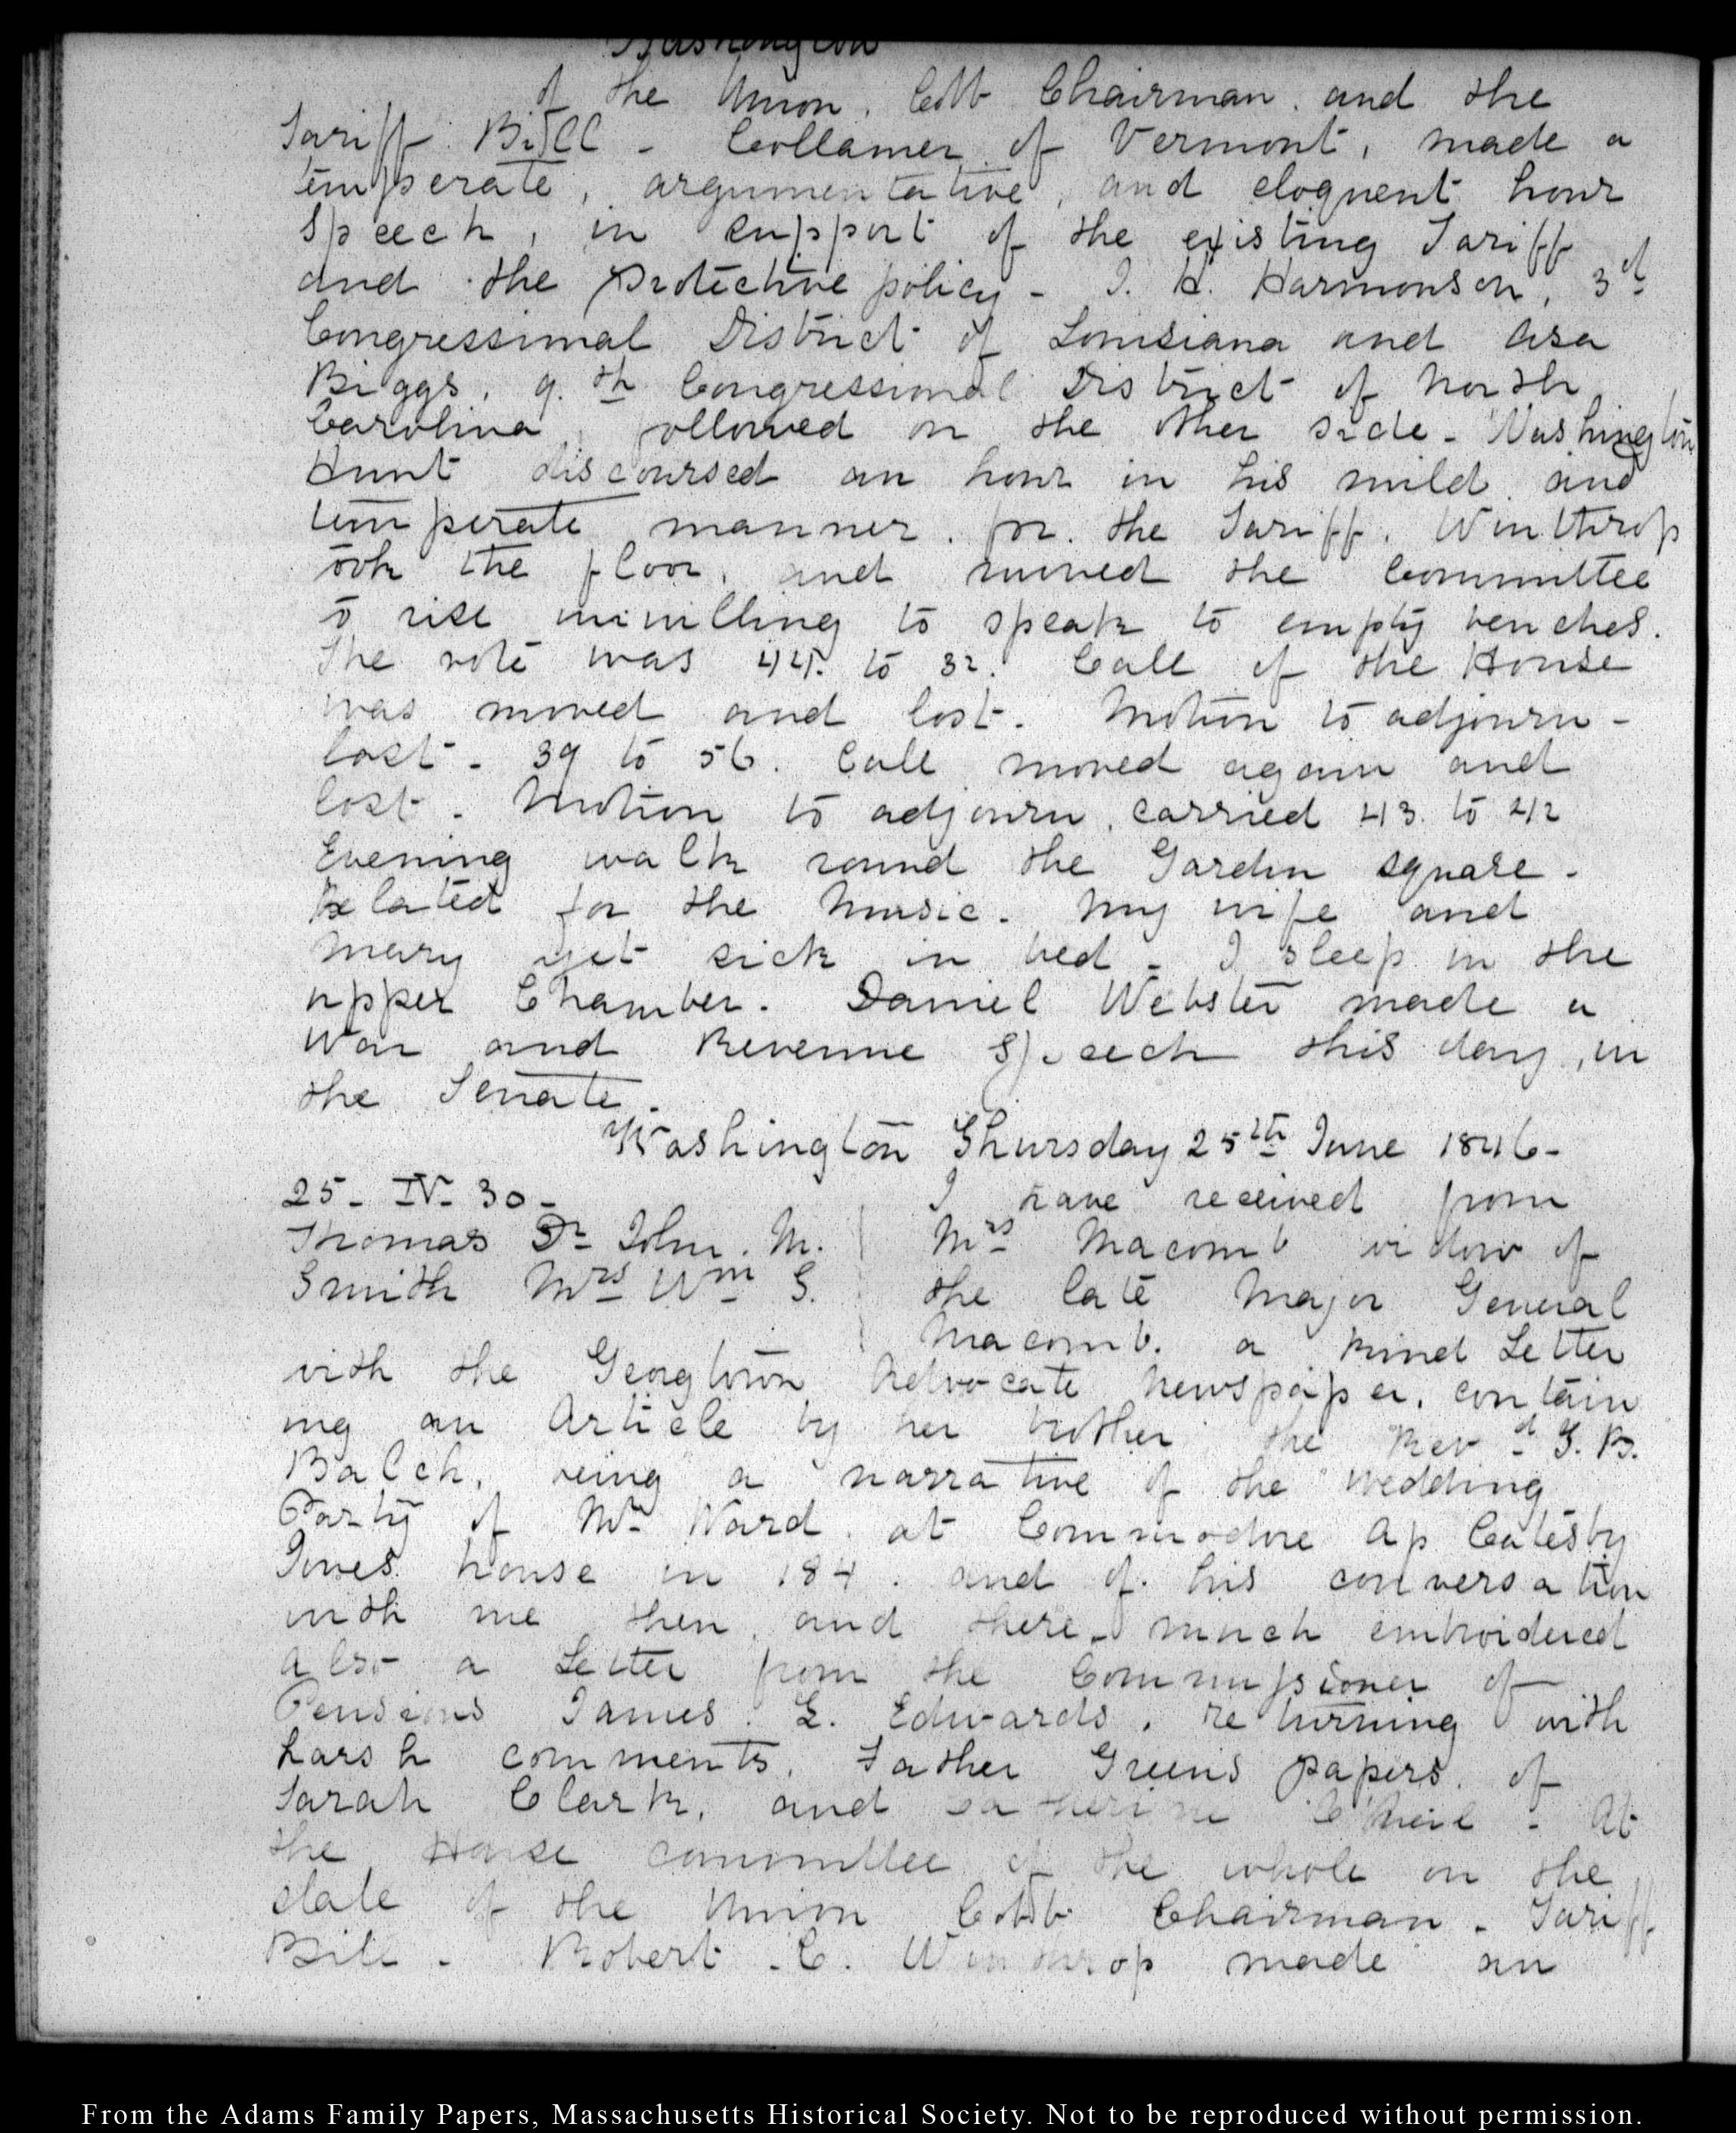 Washington
of the Union. Cobb Chairman. and the
Tariff Bill - Collamer of Vermont, made a
temperate, argumentative, and eloquent hour
speech, in support of the existing Tariff
and the protective policy - J. H. Harmonson, 3.d
Congressional District of Louisiana and Asa
Biggs, 9.th Congressional District of North
Carolina, followed on the other side - Washington
Hunt discoursed an hour in his mild and
temperate manner. for the Tariff. Winthrop
took the floor, and moved the Committee
to rise unwilling to speak to empty benches.
The vote was 44. to 32. Call of the House
was moved and lost. Motion to adjourn -
lost - 39 to 56. Call moved again and
lost. Motion to adjourn, carried 43. to 42
Evening walk round the Garden square -
Belated for the Music. My wife and
Mary yet sick in bed - I sleep in the
upper Chamber. Daniel Webster made a
War and Revenue Speech this day, in
the Senate.
Washington Thursday 25th June 1846-
25- IV- 30- I have received from
Thomas Dr John. M. Mrs Macomb widow of
Smith Mrs Wm S. the late Major General
Macomb. a kind Letter
with the Georgtown Advocate Newspaper, contain
ing an Article by her brother the Revd. T. B.
Balch, being a narrative of the wedding
Party of Mr Ward. at Commodore Ap Catesby
Jones house in 184 . and of his conversation
with me then, and there - much embroidered
Also a Letter from the Commissioner of
Pensions James. L. Edwards, returning with
harsh comments, Father Green's papers. of
Sarah Clark, and Catherine O'Neil - At
the House committee of the whole on the
state of the Union Cobb Chairman - Tariff
Bill - Robert. C. Winthrop made an
From the Adams Family Papers, Massachusetts Historical Society. Not to be reproduced without permission.